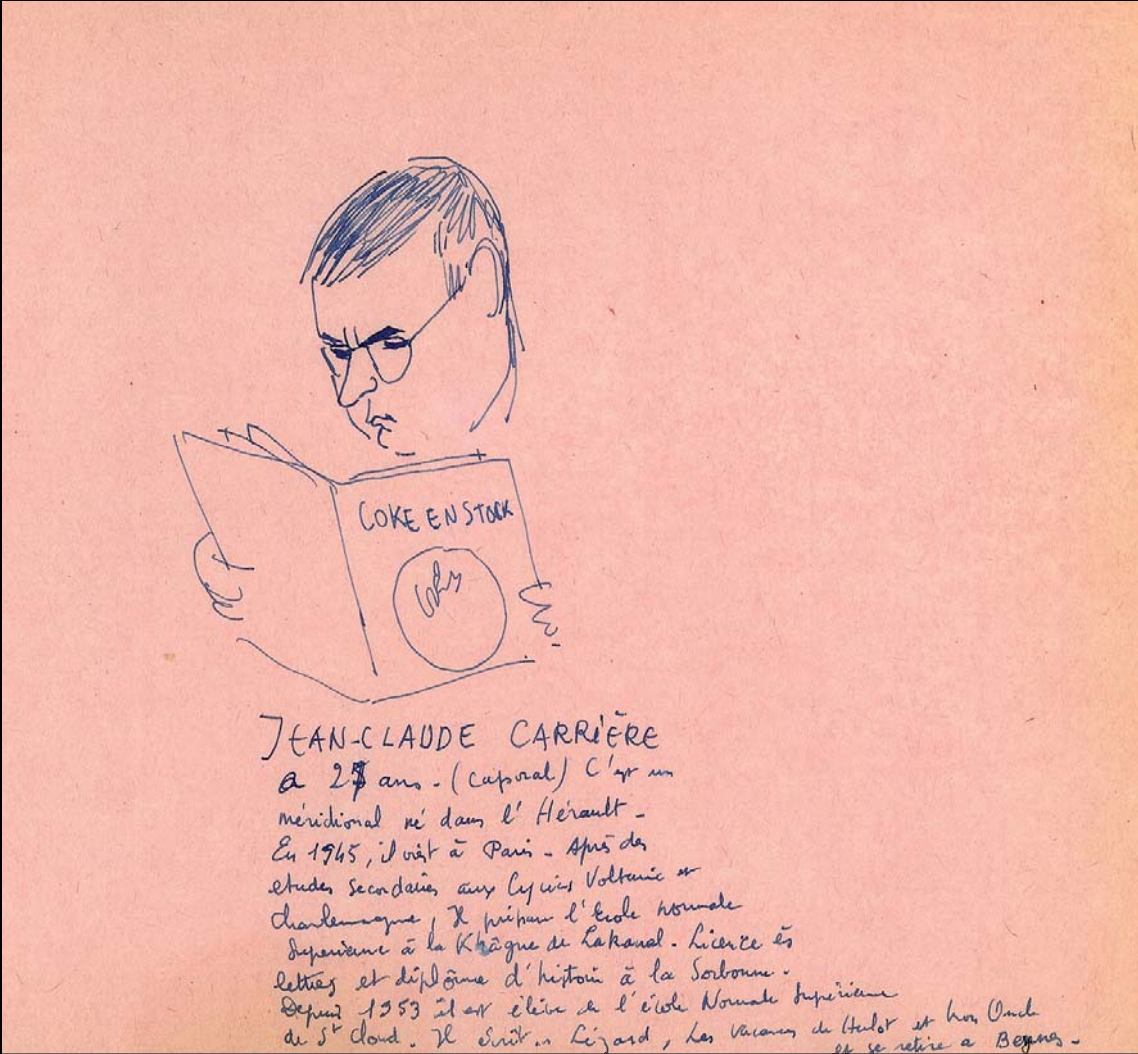 COKE EN STOCK
JEAN-CLAUDE CARRIÈRE
a 27 ans - (caporal) C'est un
méridional né dans l'Hérault -
En 1945, il vient à Paris - Après des
etudes secondaires aux Lycées Voltaire et
Charlemagne, Il prépare l'Ecole normale
Superieure à la Khâgne de Lakanal - Licencié ès
lettres et diplôme d'histoire à la Sorbonne -
Depuis 1953 il est élève de l'école Normale Supérieure
de St Cloud. Il écrit Lézard, Les vacances de Hulot et Mon Oncle
et se retire a Beynes -